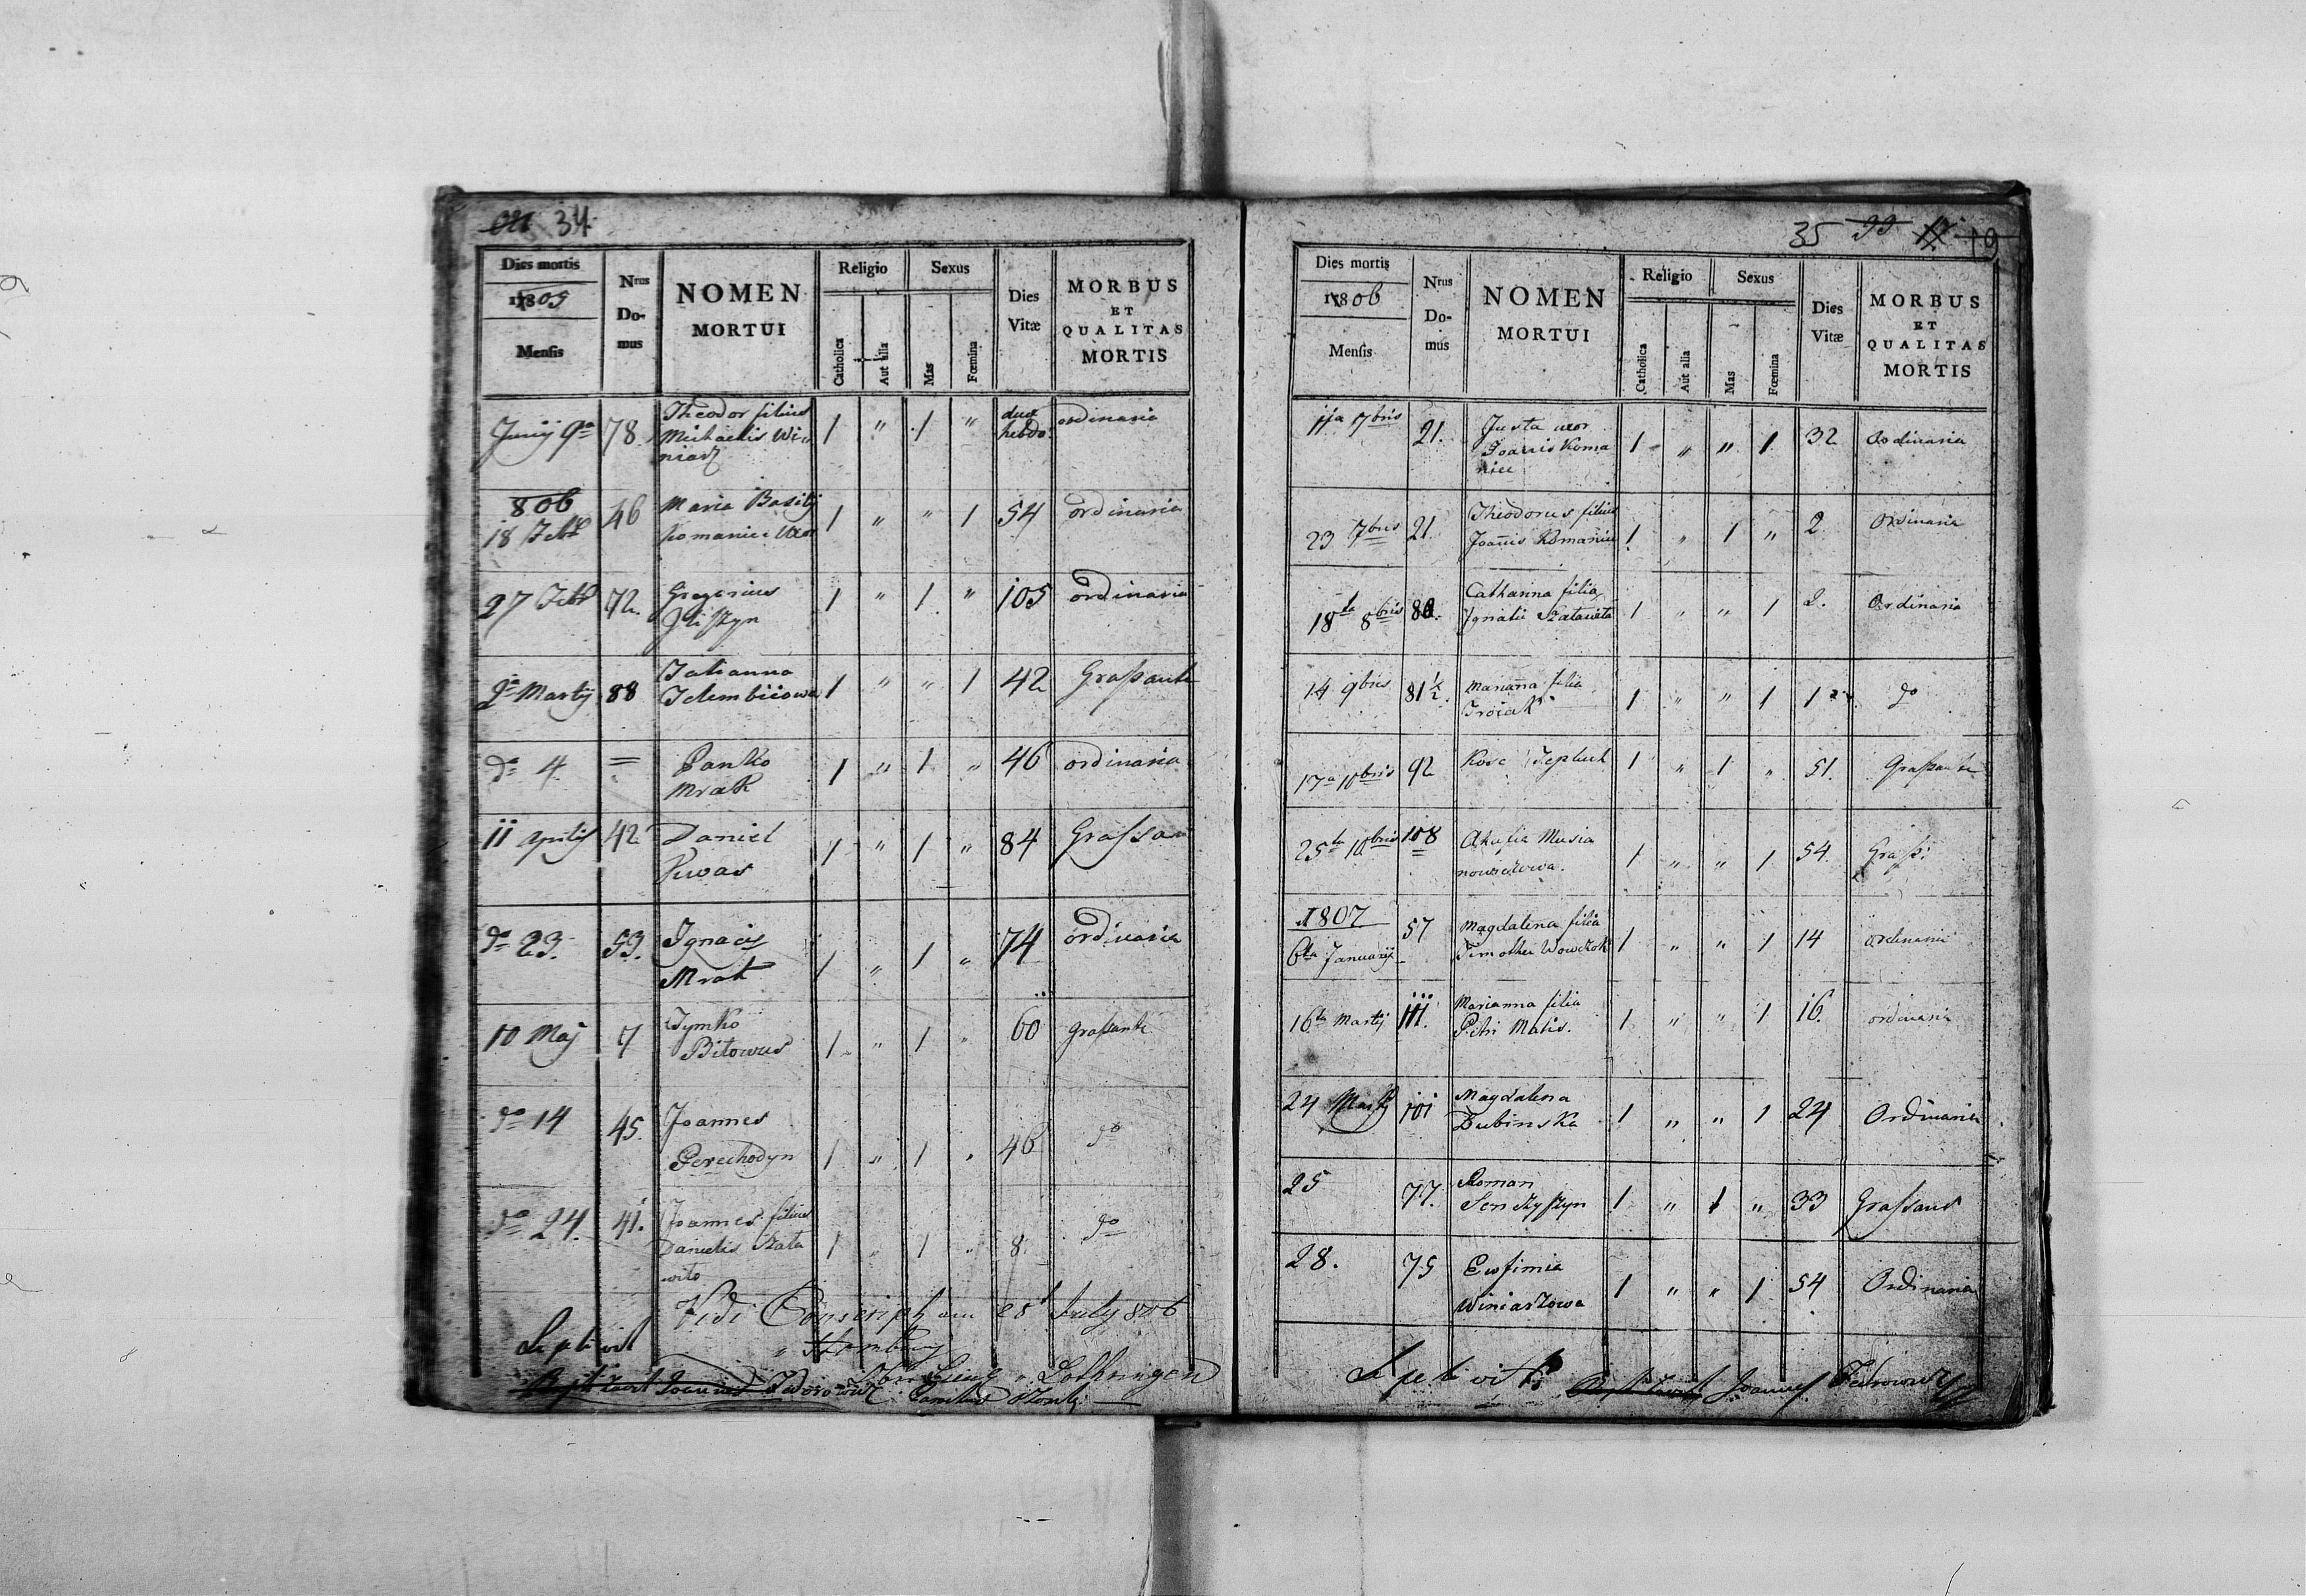 34
Dies mortis
1805
Mensis
Nrus
Do-
mus
NOMEN
MORTUI
Religio
Catholica
Aut alia
Sexus
Mas
Fœmina
Dies
Vitæ
MORBUS
ET
QUALITAS
MORTIS
Junij 9a 78. Theodor filius Michaelis Wi niarz 1 " 1 " duæ hebdo: ordinaria
806
18 Febr 46 Maria Basilij Romaniec Uxor 1 " " 1 54 ordinaria
27 Febr 72. Gregorius 1 " 1 " 105 ordinaria
2a Martij 88 Tatianna 1 " " 1 42 Graſsante
do 4 = Panko Mrak 1 " 1 " 46 ordinaria
ii Aprilis 42 Daniel Kwas 1 " 1 " 84 Graſsan
do 23. 53. Ignacij Mrak 1 " 1 " 74 ordinaria
10 Maj 7 Tymko Bitowus 1 " 1 " 60 graſsante
do 14 45. Joannes Perechodyn 1 " 1 " 46 do
do 24. 41. Joannes filius Danielis Szata wito 1 " 1 " 8. do
Vidi Conscript am 28t July 806
Lothringen
35 33 19
Dies mortis
1806
Mensis
Nrus
Do-
mus
NOMEN
MORTUI
Religio
Catholica
Aut alia
Sexus
Mas
Fœmina
Dies
Vitæ
MORBUS
ET
QUALITAS
MORTIS
11a 7bris 21. Justa uxor Joanis Roma niec 1 " " 1 32 Ordinaria
23 7bris 21. Theodorus filius Joanis Romaniec 1 " 1 " 2. Ordinaria
18ta 8bris 80. Catharina filia Ignatii Szatawita 1 " " 1 2. Ordinaria
14 9bris 81½. Marianna filia Troiak 1 " " 1 1 do
17a 10bris 92 1 " 1 " 51. Graſsante
25ta 10bris 108 Musia 1 " " 1 54. Graſs:
1807
6ta Januarij 57 Magdalena filia Timothei Wowczok 1 " " 1 14 ordinaria
16ta Martij 111. Marianna filia Petri Matis. 1 " " 1 16. ordinaria
24 Martij 101 Magdalena Dubinska 1 " " 1 24 Ordinaria
25 77. Roman Senczyszyn 1 " 1 " 33 Graſsans
28. 75 Eufimia Winiarzowa 1 " " 1 54 Ordinaria
Sepelivit
Joannes